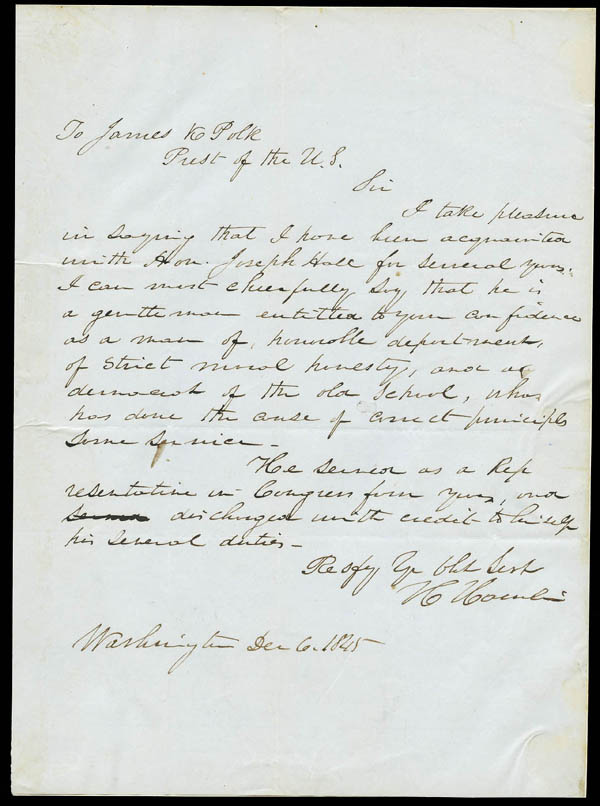 To James K Polk
Prest of the U.S.
Sir
I take pleasure
in saying that I have been acquainted
with Hon. Joseph Hall for several years.
I can most cheerfully say that he is
a gentleman entitled to your confidence
as a man of honorable deportment,
of strict moral honesty, and a
democrat of the old School, who
has done the cause of correct principles
some service -
He served as a Rep
resentative in Congress four years, and
discharged with credit to himself
his several duties -
Respy Yr Obt Sert
H Hamlin
Washington Dec 6. 1845